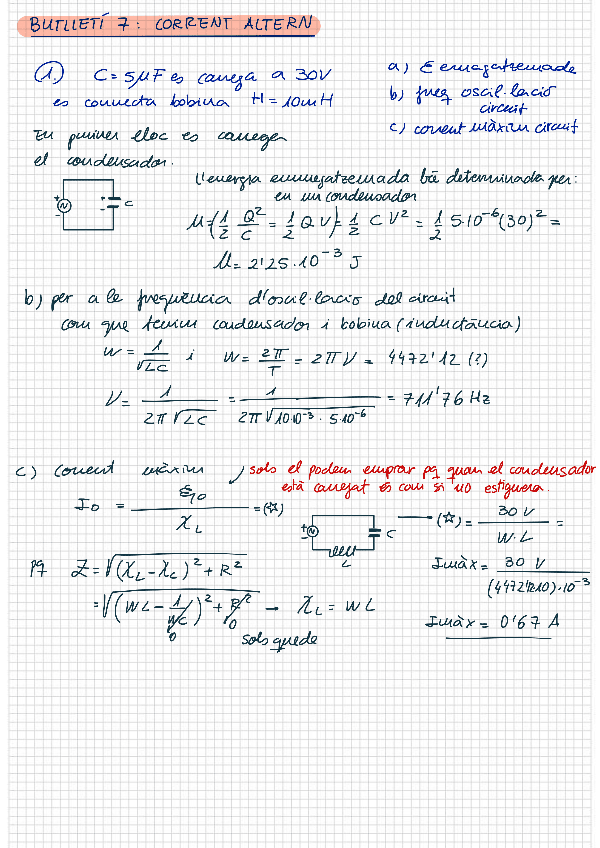 BUTLLETÍ 7: CORRENT ALTERN
① C = 5µF es carrega a 30V
es connecta bobina H = 10mH
a) E emmagatzemada
b) freq oscil·lació circuit
c) corrent màxim circuit
En primer lloc es carrega
el condensador.
C
L'energia emmagatzemada bé determinada per:
en un condensador
U = (1/2 Q²/C = 1/2 QV) = 1/2 CV² = 1/2 5·10⁻⁶(30)² =
U = 2'25·10⁻³ J
b) per a la freqüència d'oscil·lació del circuit
com que tenim condensador i bobina (inductància)
W = 1/√LC i W = 2π/T = 2πV = 4472'12 (?)
V = 1/2π√LC = 1/2π√10·10⁻³·5·10⁻⁶ = 711'76 Hz
c) corrent màxim
sols el podem emprar pq quan el condensador
està carregat és com si no estiguera.
I₀ = ℰ₁₀/X_L = (☆)
C
L
(☆) = 30V/W·L =
pq Z = √(X_L - X_C)² + R²
Imàx = 30 V/(4472'12·10)·10⁻³
= √(WL - 1/WC)² + R² → X_L = WL
0 0
Imàx = 0'67 A
sols queda